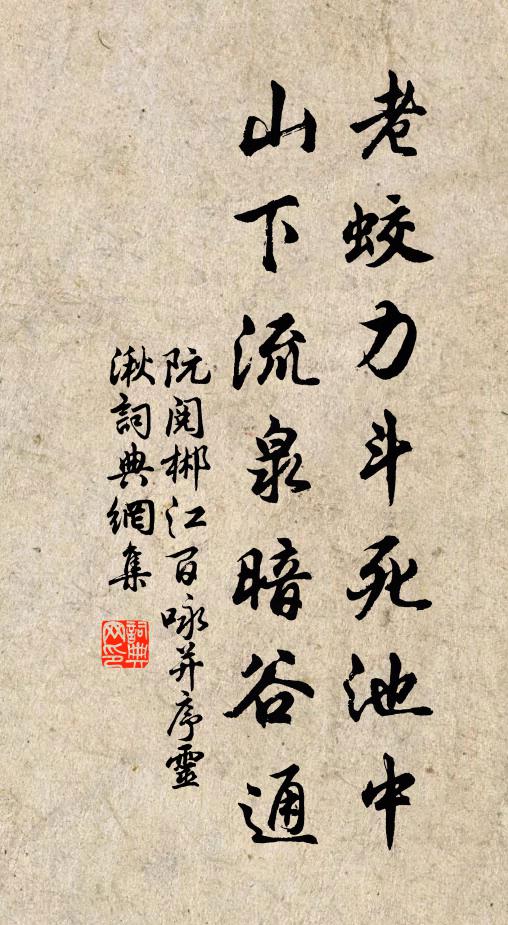 老蛟力斗死池中
山下流泉暗谷通
阮閱郴江百咏并序靈
湫詞典網集
詞典
网印